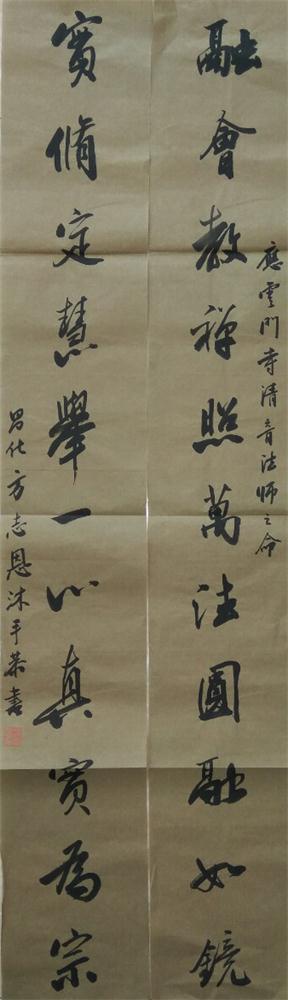 應雲門寺清音法師之命
融會教禪照萬法圓融如鏡
實脩定慧舉一心真實為宗
昌化方志恩沐手恭書